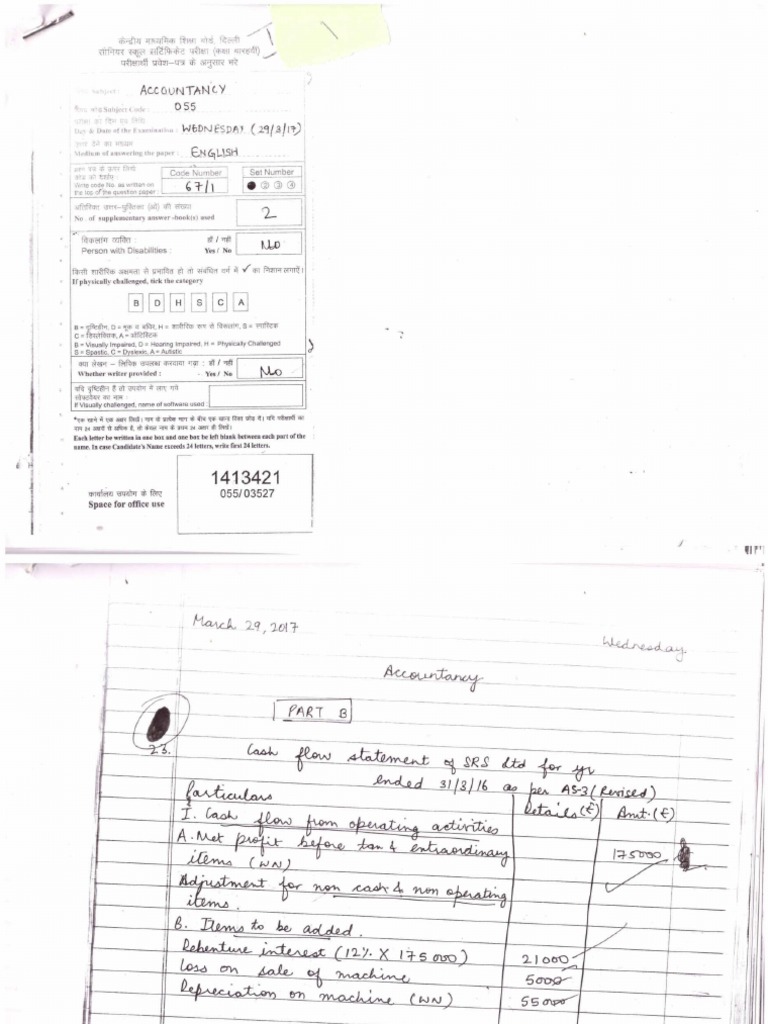 केन्द्रीय माध्यमिक शिक्षा बोर्ड, दिल्ली
सीनियर स्कूल सर्टिफिकेट परीक्षा (कक्षा बारहवीं)
परीक्षार्थी प्रवेश-पत्र के अनुसार भरें
Subject : ACCOUNTANCY
Subject Code : 055
परीक्षा का दिन एवं तिथि
Day & Date of the Examination : WEDNESDAY (29/3/17)
उत्तर देने का माध्यम
Medium of answering the paper : ENGLISH
प्रश्न पत्र के ऊपर लिखे
कोड को दर्शाए :
Write code No. as written on
the top of the question paper :
Code Number
67/1
Set Number
② ③ ④
अतिरिक्त उत्तर-पुस्तिका (ओं) की संख्या
No. of supplementary answer -book(s) used
2
विकलांग व्यक्ति : हाँ / नहीं
Person with Disabilities : Yes / No
No
किसी शारीरिक अक्षमता से प्रभावित हो तो संबंधित वर्ग में ✓ का निशान लगाएँ।
If physically challenged, tick the category
B D H S C A
B = दृष्टिहीन, D = मूक व बधिर, H = शारीरिक रूप से विकलांग, S = स्पास्टिक
C = डिस्लेक्सिक, A = ऑटिस्टिक
B = Visually Impaired, D = Hearing Impaired, H = Physically Challenged
S = Spastic, C = Dyslexic, A = Autistic
क्या लेखन - लिपिक उपलब्ध करवाया गया : हाँ / नहीं
Whether writer provided : Yes / No
No
यदि दृष्टिहीन हैं तो उपयोग में लाए गये
सोफ्टवेयर का नाम :
If Visually challenged, name of software used :
*एक खाने में एक अक्षर लिखें। नाम के प्रत्येक भाग के बीच एक खाना रिक्त छोड़ दें। यदि परीक्षार्थी का
नाम 24 अक्षरों से अधिक है, तो केवल नाम के प्रथम 24 अक्षर ही लिखें।
Each letter be written in one box and one box be left blank between each part of the
name. In case Candidate's Name exceeds 24 letters, write first 24 letters.
कार्यालय उपयोग के लिए
Space for office use
1413421
055/03527
March 29, 2017
Wednesday
Accountancy
PART B
23.
Cash flow statement of SRS Ltd for yr
ended 31/3/16 as per AS-3 (Revised)
Particulars Details (₹) Amt. (₹)
I. Cash flow from operating activities
A. Net profit before tax & extraordinary
items (WN) 175000
Adjustment for non cash & non operating
items.
B. Items to be added.
Debenture interest (12% X 175000) 21000
Loss on sale of machine 5000
Depreciation on machine (WN) 55000